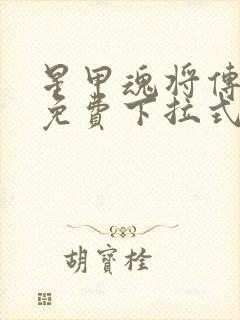 星甲魂将傳
免費下拉式
胡寶栓